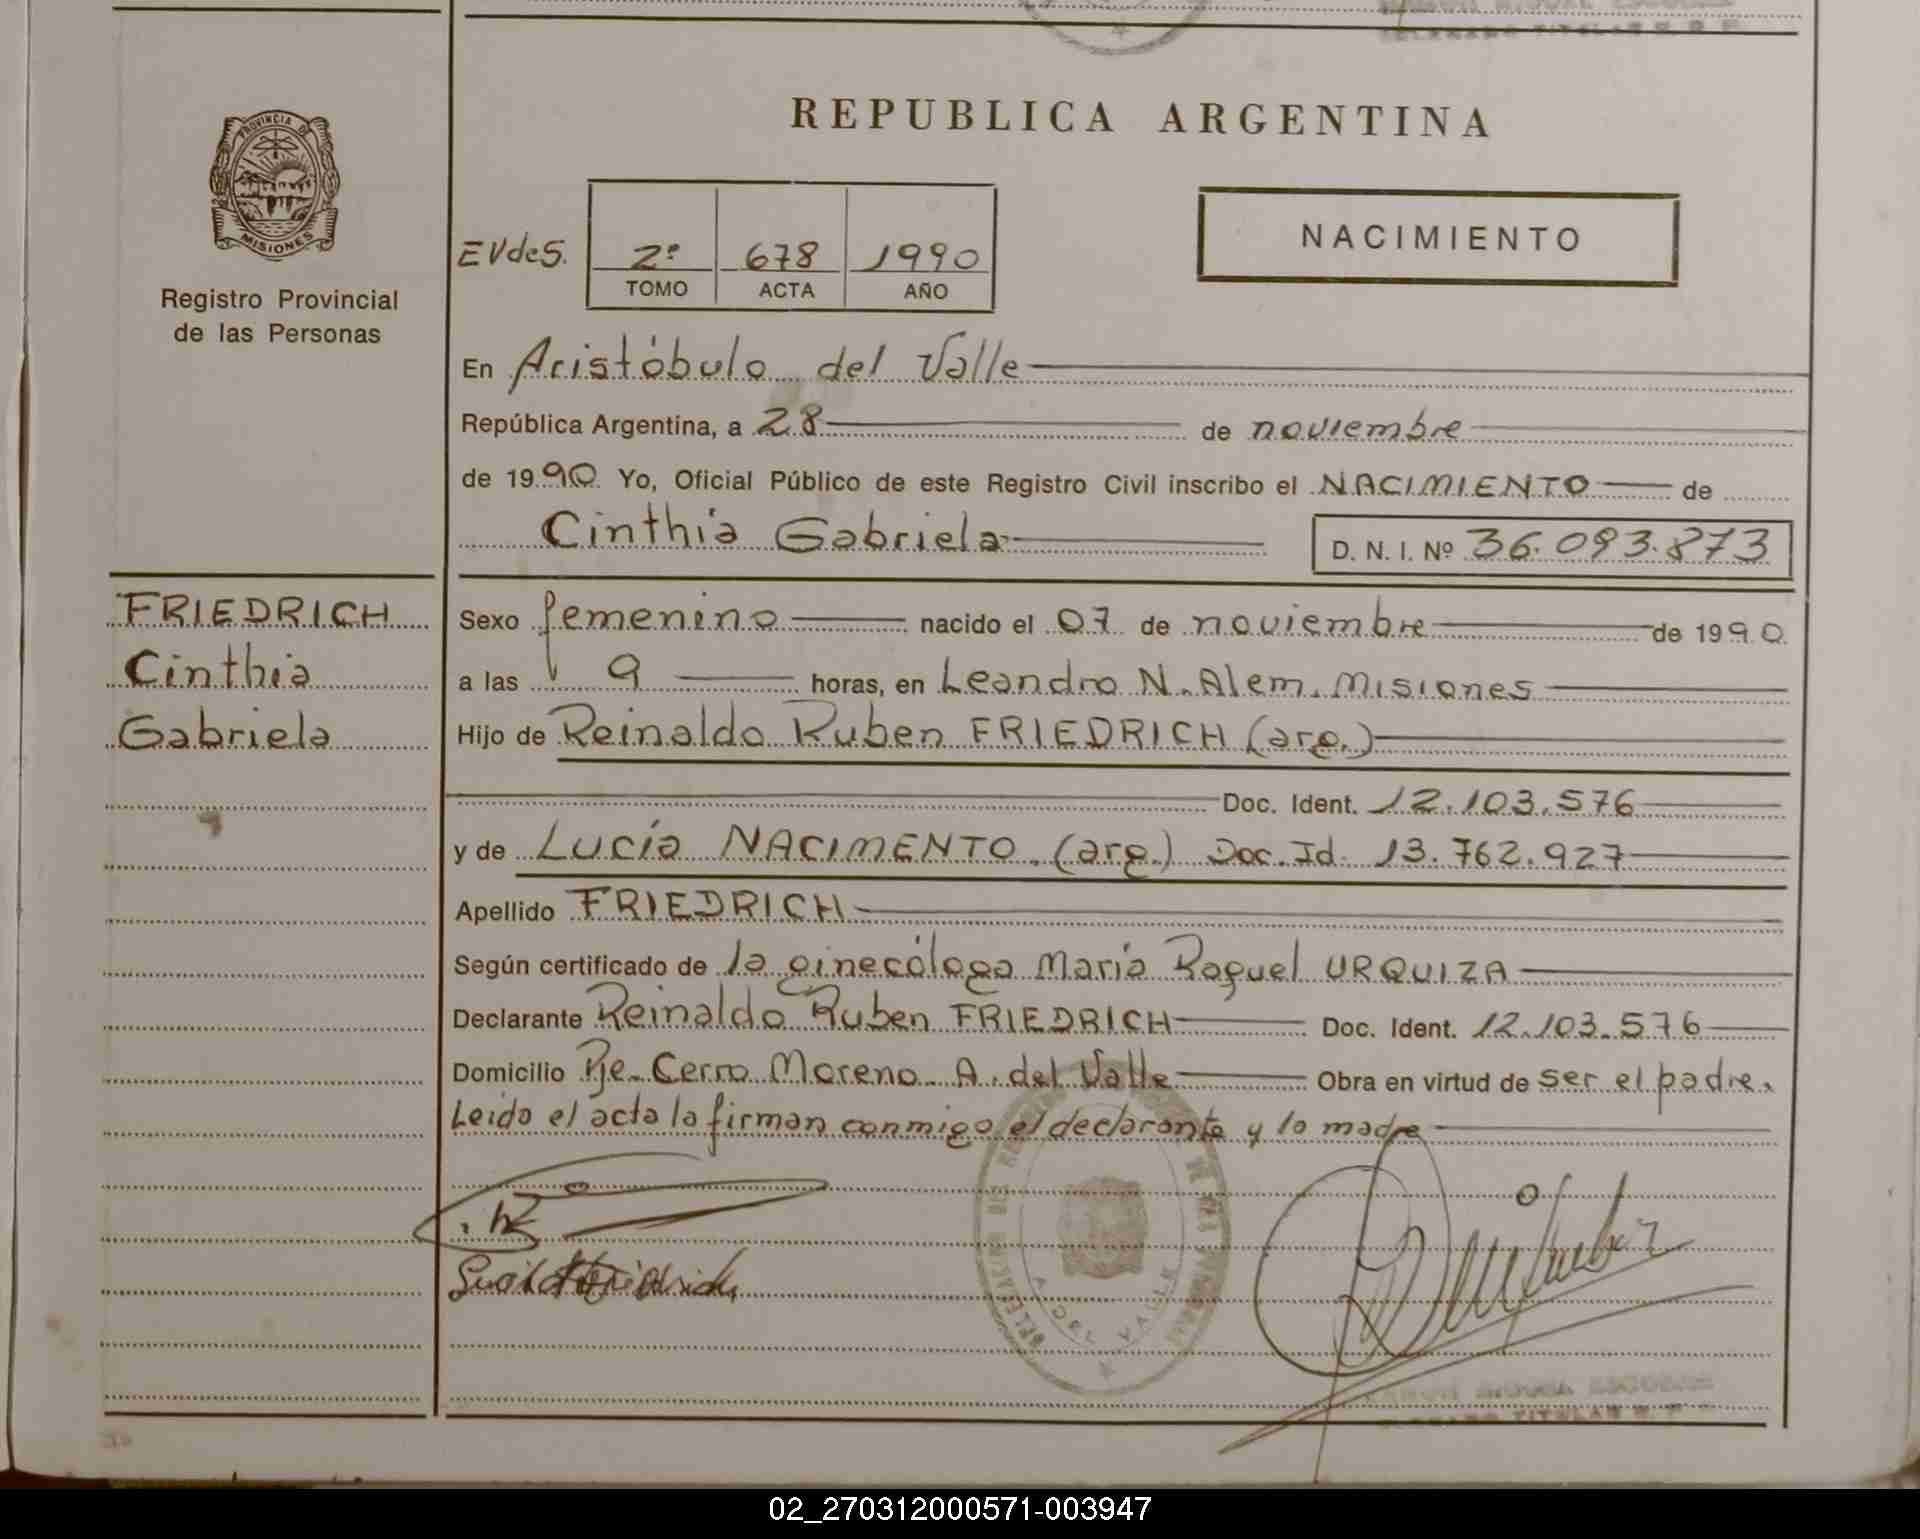 REPUBLICA ARGENTINA
PROVINCIA DE
MISIONES
Registro Provincial
de las Personas
EVdeS. 2º 678 1990
TOMO ACTA AÑO
NACIMIENTO
En Aristóbulo del Valle
República Argentina, a 28 de noviembre
de 1990 Yo, Oficial Público de este Registro Civil inscribo el NACIMIENTO de
Cinthia Gabriela D. N. I. Nº 36.093.873
FRIEDRICH
Cinthia
Gabriela
Sexo femenino nacido el 07 de noviembre de 1990
a las 9 horas, en Leandro N. Alem. Misiones
Hijo de Reinaldo Ruben FRIEDRICH (arg.)
Doc. Ident. 12.103.576
y de Lucía NACIMENTO. (arg.) Doc. Id. 13.762.927
Apellido FRIEDRICH
Según certificado de la ginecóloga María Raquel URQUIZA
Declarante Reinaldo Ruben FRIEDRICH Doc. Ident. 12.103.576
Domicilio Pje. Cerro Moreno. A. del Valle Obra en virtud de ser el padre.
Leído el acta la firman conmigo el declarante y la madre
A. DEL VALLE
TITULAR
02_270312000571-003947